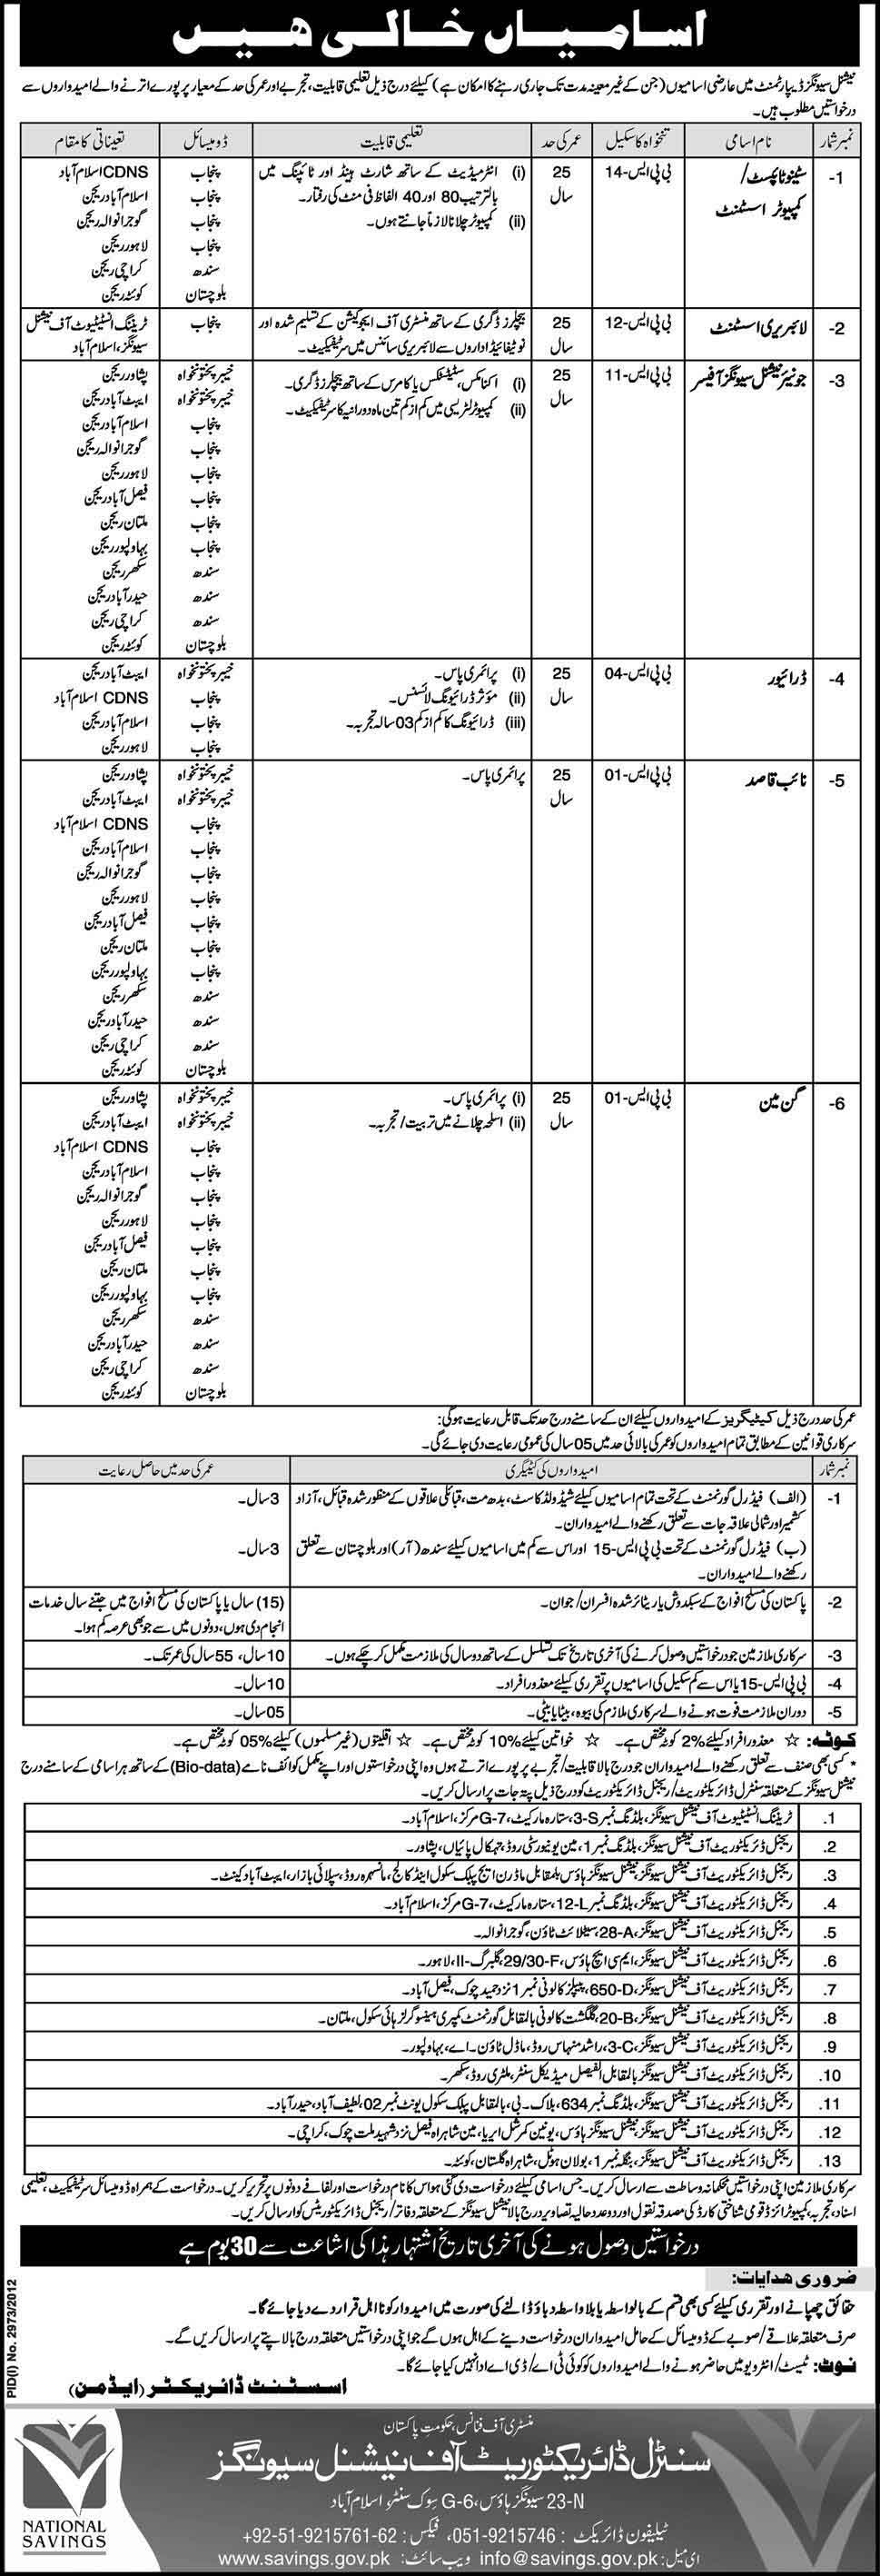 اسامیاں خالی ھیں
نیشنل سیونگز ڈیپارٹمنٹ میں عارضی اسامیوں (جن کے غیر معینہ مدت تک جاری رہنے کا امکان ہے) کیلئے درج ذیل تعلیمی قابلیت، تجربے اور عمر کی حد کے معیار پر پورے اترنے والے امیدواروں سے
درخواستیں مطلوب ہیں۔
نمبر شمار نام اسامی تنخواہ کا سکیل عمر کی حد تعلیمی قابلیت ڈومیسائل تعیناتی کا مقام
1- سٹینو ٹائپسٹ/ بی پی ایس-14 25 (i) انٹرمیڈیٹ کے ساتھ شارٹ ہینڈ اور ٹائپنگ میں پنجاب CDNS اسلام آباد
کمپیوٹر اسسٹنٹ سال بالترتیب 80 اور 40 الفاظ فی منٹ کی رفتار۔ پنجاب اسلام آباد ریجن
(ii) کمپیوٹر چلانا لازماً جانتے ہوں۔ پنجاب گوجرانوالہ ریجن
پنجاب لاہور ریجن
سندھ کراچی ریجن
بلوچستان کوئٹہ ریجن
2- لائبریری اسسٹنٹ بی پی ایس-12 25 بیچلرز ڈگری کے ساتھ منسٹری آف ایجوکیشن کے تسلیم شدہ اور پنجاب ٹریننگ انسٹیٹیوٹ آف نیشنل
سال نوٹیفائیڈ اداروں سے لائبریری سائنس میں سرٹیفکیٹ۔ سیونگز، اسلام آباد
3- جونیئر نیشنل سیونگز آفیسر بی پی ایس-11 25 (i) اکنامکس، سٹیٹسٹکس یا کامرس کے ساتھ بیچلرز ڈگری۔ خیبر پختونخواہ پشاور ریجن
سال (ii) کمپیوٹر لٹریسی میں کم از کم تین ماہ دورانیہ کا سرٹیفکیٹ۔ خیبر پختونخواہ ایبٹ آباد ریجن
پنجاب اسلام آباد ریجن
پنجاب گوجرانوالہ ریجن
پنجاب لاہور ریجن
پنجاب فیصل آباد ریجن
پنجاب ملتان ریجن
پنجاب بہاولپور ریجن
سندھ سکھر ریجن
سندھ حیدر آباد ریجن
سندھ کراچی ریجن
بلوچستان کوئٹہ ریجن
4- ڈرائیور بی پی ایس-04 25 (i) پرائمری پاس۔ خیبر پختونخواہ ایبٹ آباد ریجن
سال (ii) مؤثر ڈرائیونگ لائسنس۔ پنجاب CDNS اسلام آباد
(iii) ڈرائیونگ کا کم از کم 03 سالہ تجربہ۔ پنجاب اسلام آباد ریجن
پنجاب لاہور ریجن
5- نائب قاصد بی پی ایس-01 25 پرائمری پاس۔ خیبر پختونخواہ پشاور ریجن
سال خیبر پختونخواہ ایبٹ آباد ریجن
پنجاب CDNS اسلام آباد
پنجاب اسلام آباد ریجن
پنجاب گوجرانوالہ ریجن
پنجاب لاہور ریجن
پنجاب فیصل آباد ریجن
پنجاب ملتان ریجن
پنجاب بہاولپور ریجن
سندھ سکھر ریجن
سندھ حیدر آباد ریجن
سندھ کراچی ریجن
بلوچستان کوئٹہ ریجن
6- گن مین بی پی ایس-01 25 (i) پرائمری پاس۔ خیبر پختونخواہ پشاور ریجن
سال (ii) اسلحہ چلانے میں تربیت/تجربہ۔ خیبر پختونخواہ ایبٹ آباد ریجن
پنجاب CDNS اسلام آباد
پنجاب اسلام آباد ریجن
پنجاب گوجرانوالہ ریجن
پنجاب لاہور ریجن
پنجاب فیصل آباد ریجن
پنجاب ملتان ریجن
پنجاب بہاولپور ریجن
سندھ سکھر ریجن
سندھ حیدر آباد ریجن
سندھ کراچی ریجن
بلوچستان کوئٹہ ریجن
عمر کی حد درج ذیل کیٹیگریز کے امیدواروں کیلئے ان کے سامنے درج حد تک قابل رعایت ہوگی:
سرکاری قوانین کے مطابق تمام امیدواروں کو عمر کی بالائی حد میں 05 سال کی عمومی رعایت دی جائے گی۔
نمبر شمار امیدواروں کی کیٹیگری عمر کی حد میں حاصل رعایت
1- (الف) فیڈرل گورنمنٹ کے تحت تمام اسامیوں کیلئے شیڈولڈ کاسٹ، بدھ مت، قبائلی علاقوں کے منظور شدہ قبائل، آزاد 3 سال۔
کشمیر اور شمالی علاقہ جات سے تعلق رکھنے والے امیدواران۔
(ب) فیڈرل گورنمنٹ کے تحت بی پی ایس-15 اور اس سے کم میں اسامیوں کیلئے سندھ (آر) اور بلوچستان سے تعلق 3 سال۔
رکھنے والے امیدواران۔
2- پاکستان کی مسلح افواج کے سبکدوش یا ریٹائر شدہ افسران/جوان۔ (15) سال یا پاکستان کی مسلح افواج میں جتنے سال خدمات
انجام دی ہوں، دونوں میں سے جو بھی عرصہ کم ہوا۔
3- سرکاری ملازمین جو درخواستیں وصول کرنے کی آخری تاریخ تک تسلسل کے ساتھ دو سال کی ملازمت مکمل کر چکے ہوں۔ 10 سال، 55 سال کی عمر تک۔
4- بی پی ایس-15 یا اس سے کم سکیل کی اسامیوں پر تقرری کیلئے معذور افراد۔ 10 سال۔
5- دوران ملازمت فوت ہونے والے سرکاری ملازم کی بیوہ، بیٹا یا بیٹی۔ 05 سال۔
کوٹہ: ☆ معذور افراد کیلئے 2% کوٹہ مختص ہے۔ ☆ خواتین کیلئے 10% کوٹہ مختص ہے۔ ☆ اقلیتوں (غیر مسلموں) کیلئے 05% کوٹہ مختص ہے۔
* کسی بھی صنف سے تعلق رکھنے والے امیدواران جو درج بالا قابلیت/تجربے پر پورے اترتے ہوں وہ اپنی درخواستوں اور اپنے مکمل کوائف نامے (Bio-data) کے ساتھ ہر اسامی کے سامنے درج
نیشنل سیونگز کے متعلقہ سنٹرل ڈائریکٹوریٹ/ریجنل ڈائریکٹوریٹ کو درج ذیل پتہ جات پر ارسال کریں۔
1. ٹریننگ انسٹیٹیوٹ آف نیشنل سیونگز، بلڈنگ نمبر 3-S، ستارہ مارکیٹ، G-7 مرکز، اسلام آباد۔
2. ریجنل ڈائریکٹوریٹ آف نیشنل سیونگز، بلڈنگ نمبر 1، مین یونیورسٹی روڈ، تہکال پایاں، پشاور۔
3. ریجنل ڈائریکٹوریٹ آف نیشنل سیونگز، نیشنل سیونگز ہاؤس بالمقابل ماڈرن ایج پبلک سکول اینڈ کالج، مانسہرہ روڈ، سپلائی بازار، ایبٹ آباد کینٹ۔
4. ریجنل ڈائریکٹوریٹ آف نیشنل سیونگز، بلڈنگ نمبر 12-L، ستارہ مارکیٹ، G-7 مرکز، اسلام آباد۔
5. ریجنل ڈائریکٹوریٹ آف نیشنل سیونگز، 28-A، سیٹلائٹ ٹاؤن، گوجرانوالہ۔
6. ریجنل ڈائریکٹوریٹ آف نیشنل سیونگز، ایم سی ایچ ہاؤس، 29/30-F، گلبرگ-II، لاہور۔
7. ریجنل ڈائریکٹوریٹ آف نیشنل سیونگز، 650-D، پیپلز کالونی نمبر 1 نزد حمید چوک، فیصل آباد۔
8. ریجنل ڈائریکٹوریٹ آف نیشنل سیونگز، 20-B، گلگشت کالونی بالمقابل گورنمنٹ کمپری ہینسو گرلز ہائی سکول، ملتان۔
9. ریجنل ڈائریکٹوریٹ آف نیشنل سیونگز، 3-C، راشد منہاس روڈ، ماڈل ٹاؤن۔ اے، بہاولپور۔
10. ریجنل ڈائریکٹوریٹ آف نیشنل سیونگز بالمقابل الفیصل میڈیکل سنٹر، ملٹری روڈ، سکھر۔
11. ریجنل ڈائریکٹوریٹ آف نیشنل سیونگز، بلڈنگ نمبر 634، بلاک۔ بی، بالمقابل پبلک سکول یونٹ نمبر 02، لطیف آباد، حیدر آباد۔
12. ریجنل ڈائریکٹوریٹ آف نیشنل سیونگز، نیشنل سیونگز ہاؤس، یونین کمرشل ایریا، مین شاہراہ فیصل نزد شہید ملت چوک، کراچی۔
13. ریجنل ڈائریکٹوریٹ آف نیشنل سیونگز، بنگلہ نمبر 1، بولان ہوٹل، شاہراہ گلستان، کوئٹہ۔
سرکاری ملازمین اپنی درخواستیں محکمانہ وساطت سے ارسال کریں۔ جس اسامی کیلئے درخواست دی گئی ہو اس کا نام درخواست اور لفافے دونوں پر تحریر کریں۔ درخواست کے ہمراہ ڈومیسائل سرٹیفکیٹ، تعلیمی
اسناد، تجربہ، کمپیوٹرائزڈ قومی شناختی کارڈ کی مصدقہ نقول اور دو عدد حالیہ تصاویر درج بالا نیشنل سیونگز کے متعلقہ دفاتر/ریجنل ڈائریکٹوریٹس کو ارسال کریں۔
درخواستیں وصول ہونے کی آخری تاریخ اشتہار ہذا کی اشاعت سے 30 یوم ہے
ضروری ھدایات:
حقائق چھپانے اور تقرری کیلئے کسی بھی قسم کے بالواسطہ یا بلاواسطہ دباؤ ڈالنے کی صورت میں امیدوار کو نااہل قرار دے دیا جائے گا۔
صرف متعلقہ علاقے/صوبے کے ڈومیسائل کے حامل امیدواران درخواست دینے کے اہل ہوں گے جو اپنی درخواستیں متعلقہ درج بالا پتے پر ارسال کریں گے۔
نوٹ: ٹیسٹ/انٹرویو میں حاضر ہونے والے امیدواروں کو کوئی ٹی اے/ڈی اے ادا نہیں کیا جائے گا۔
اسسٹنٹ ڈائریکٹر (ایڈمن)
PID(I) No. 2973/2012
منسٹری آف فنانس، حکومت پاکستان
سنٹرل ڈائریکٹوریٹ آف نیشنل سیونگز
23-N سیونگز ہاؤس، G-6 سوک سنٹر، اسلام آباد
ٹیلیفون ڈائریکٹ : 051-9215746، فیکس : +92-51-9215761-62
ای میل: info@savings.gov.pk ویب سائٹ: www.savings.gov.pk
NATIONAL
SAVINGS